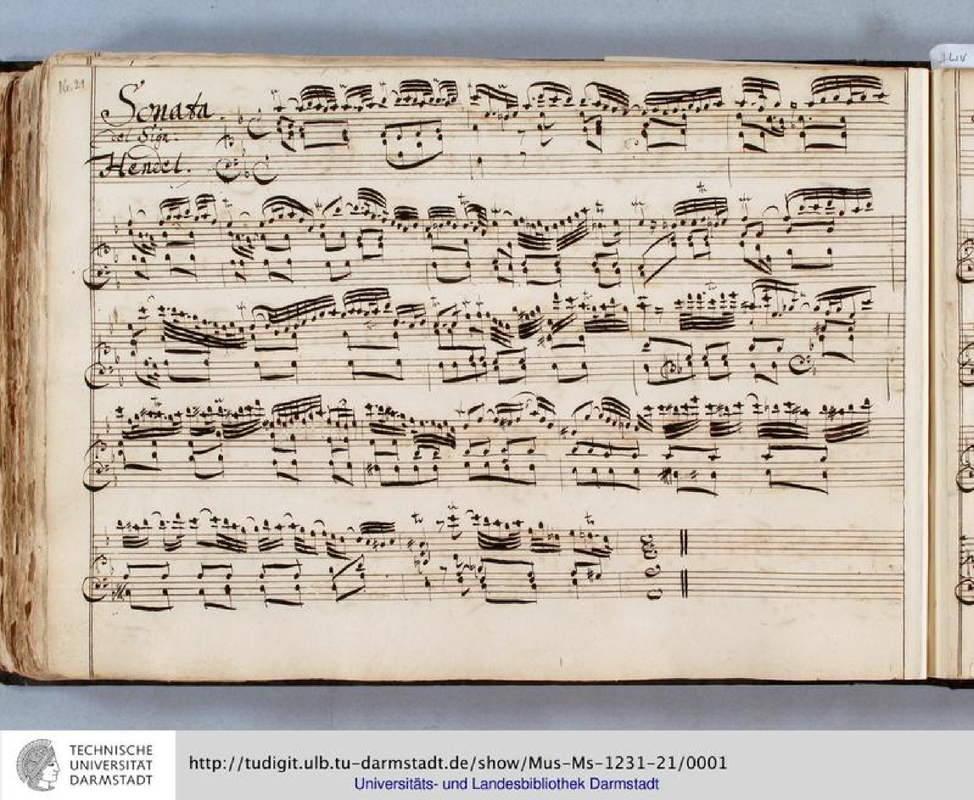 No. 21
LIV
Sonata.
del Sigr.
Hendel.
TECHNISCHE
UNIVERSITÄT
DARMSTADT
http://tudigit.ulb.tu-darmstadt.de/show/Mus-Ms-1231-21/0001
Universitäts- und Landesbibliothek Darmstadt